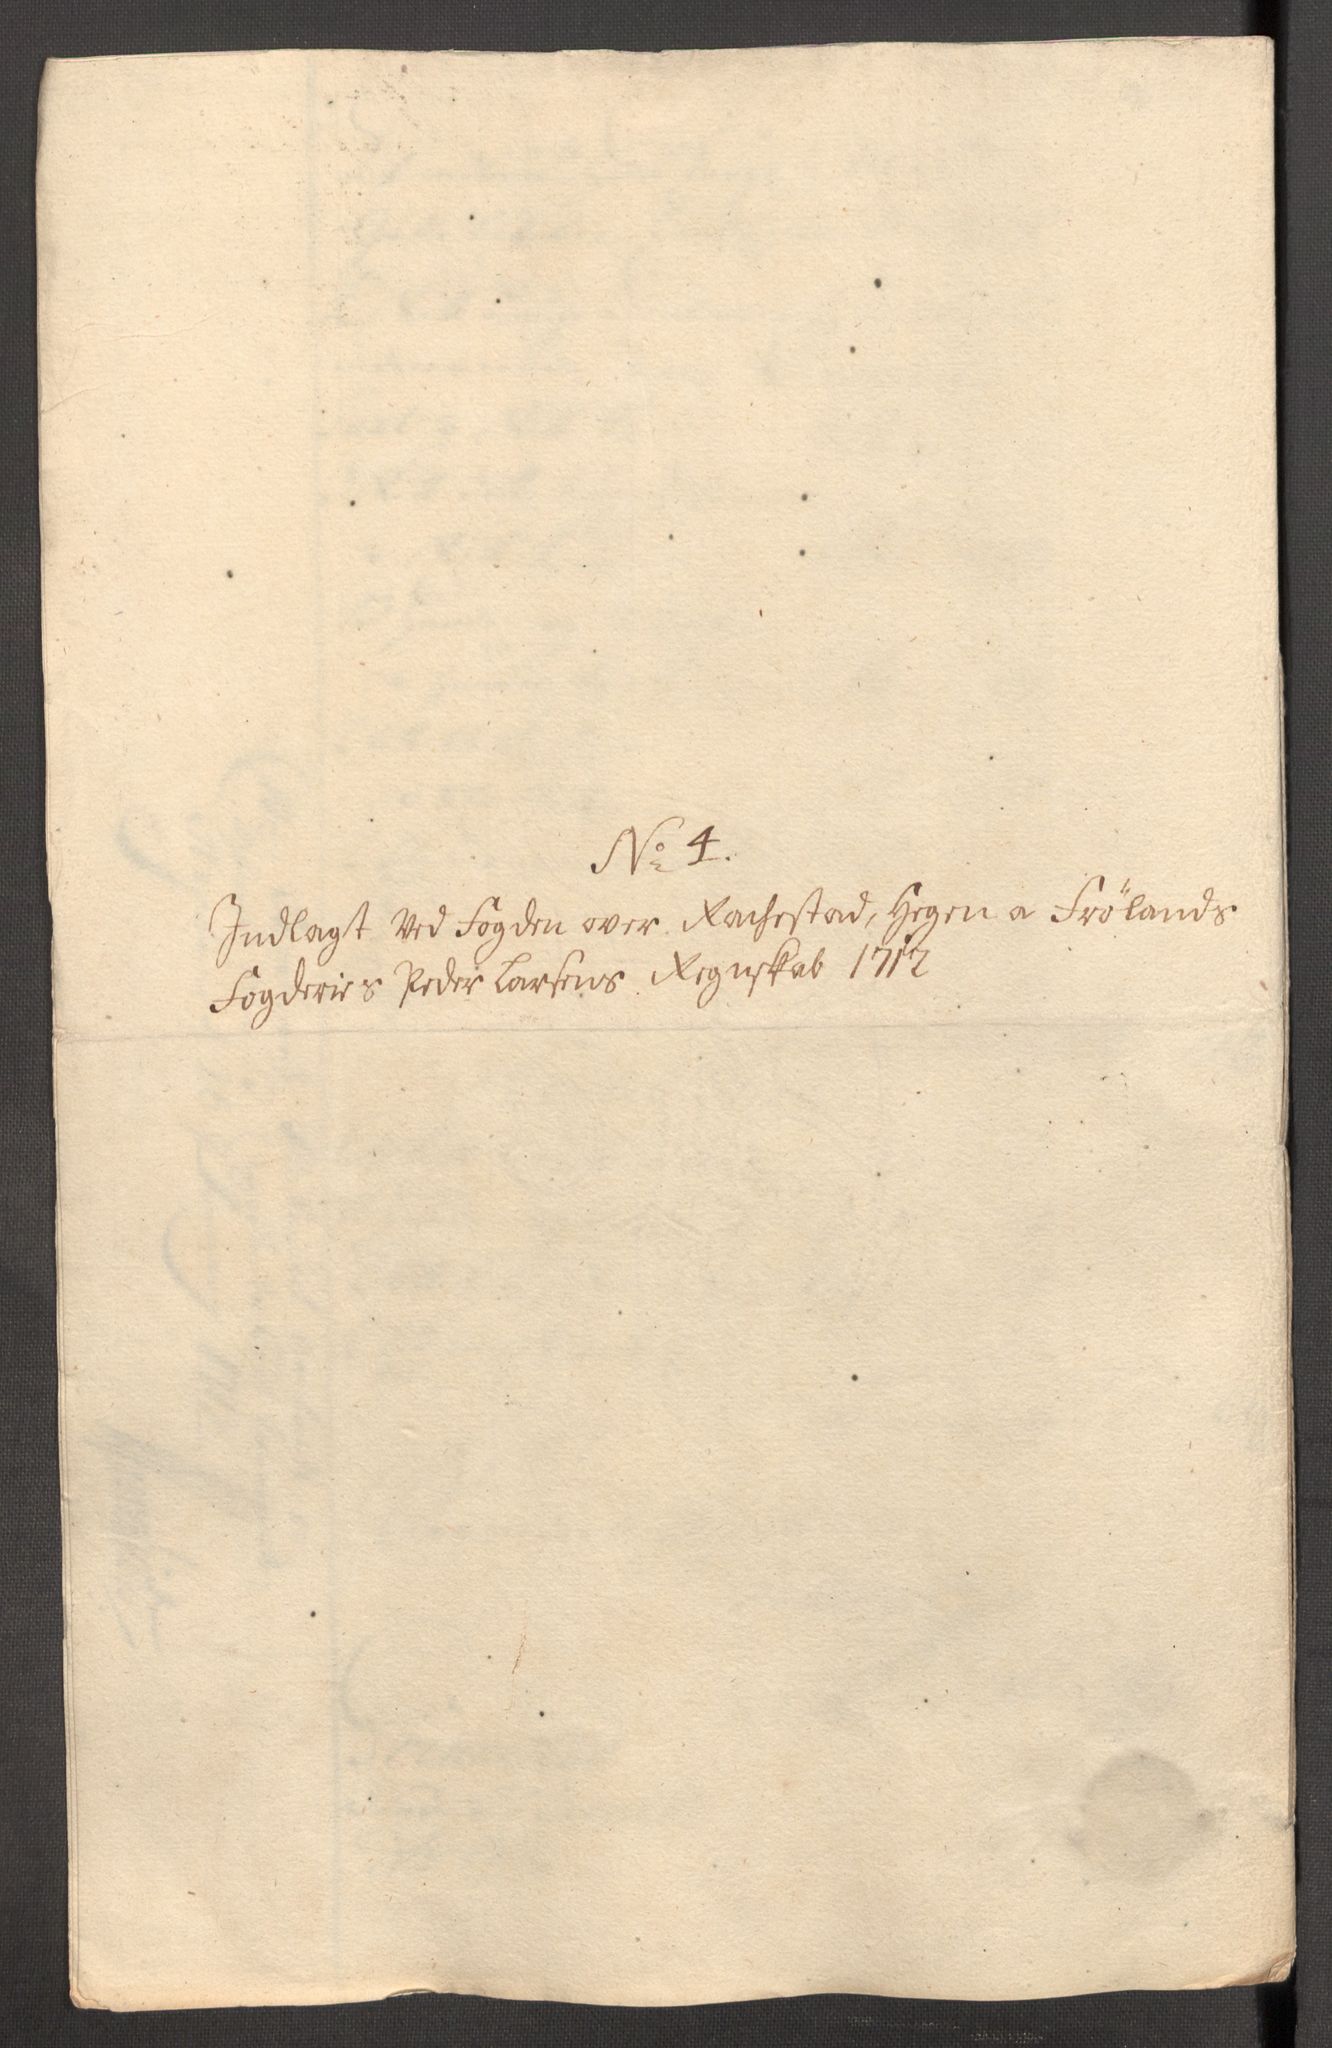 No 4.
Indlagt Ved Fogden over Rachestad, Hegen a Frölands
Fogderies Peder Larsens Regnskab 1712